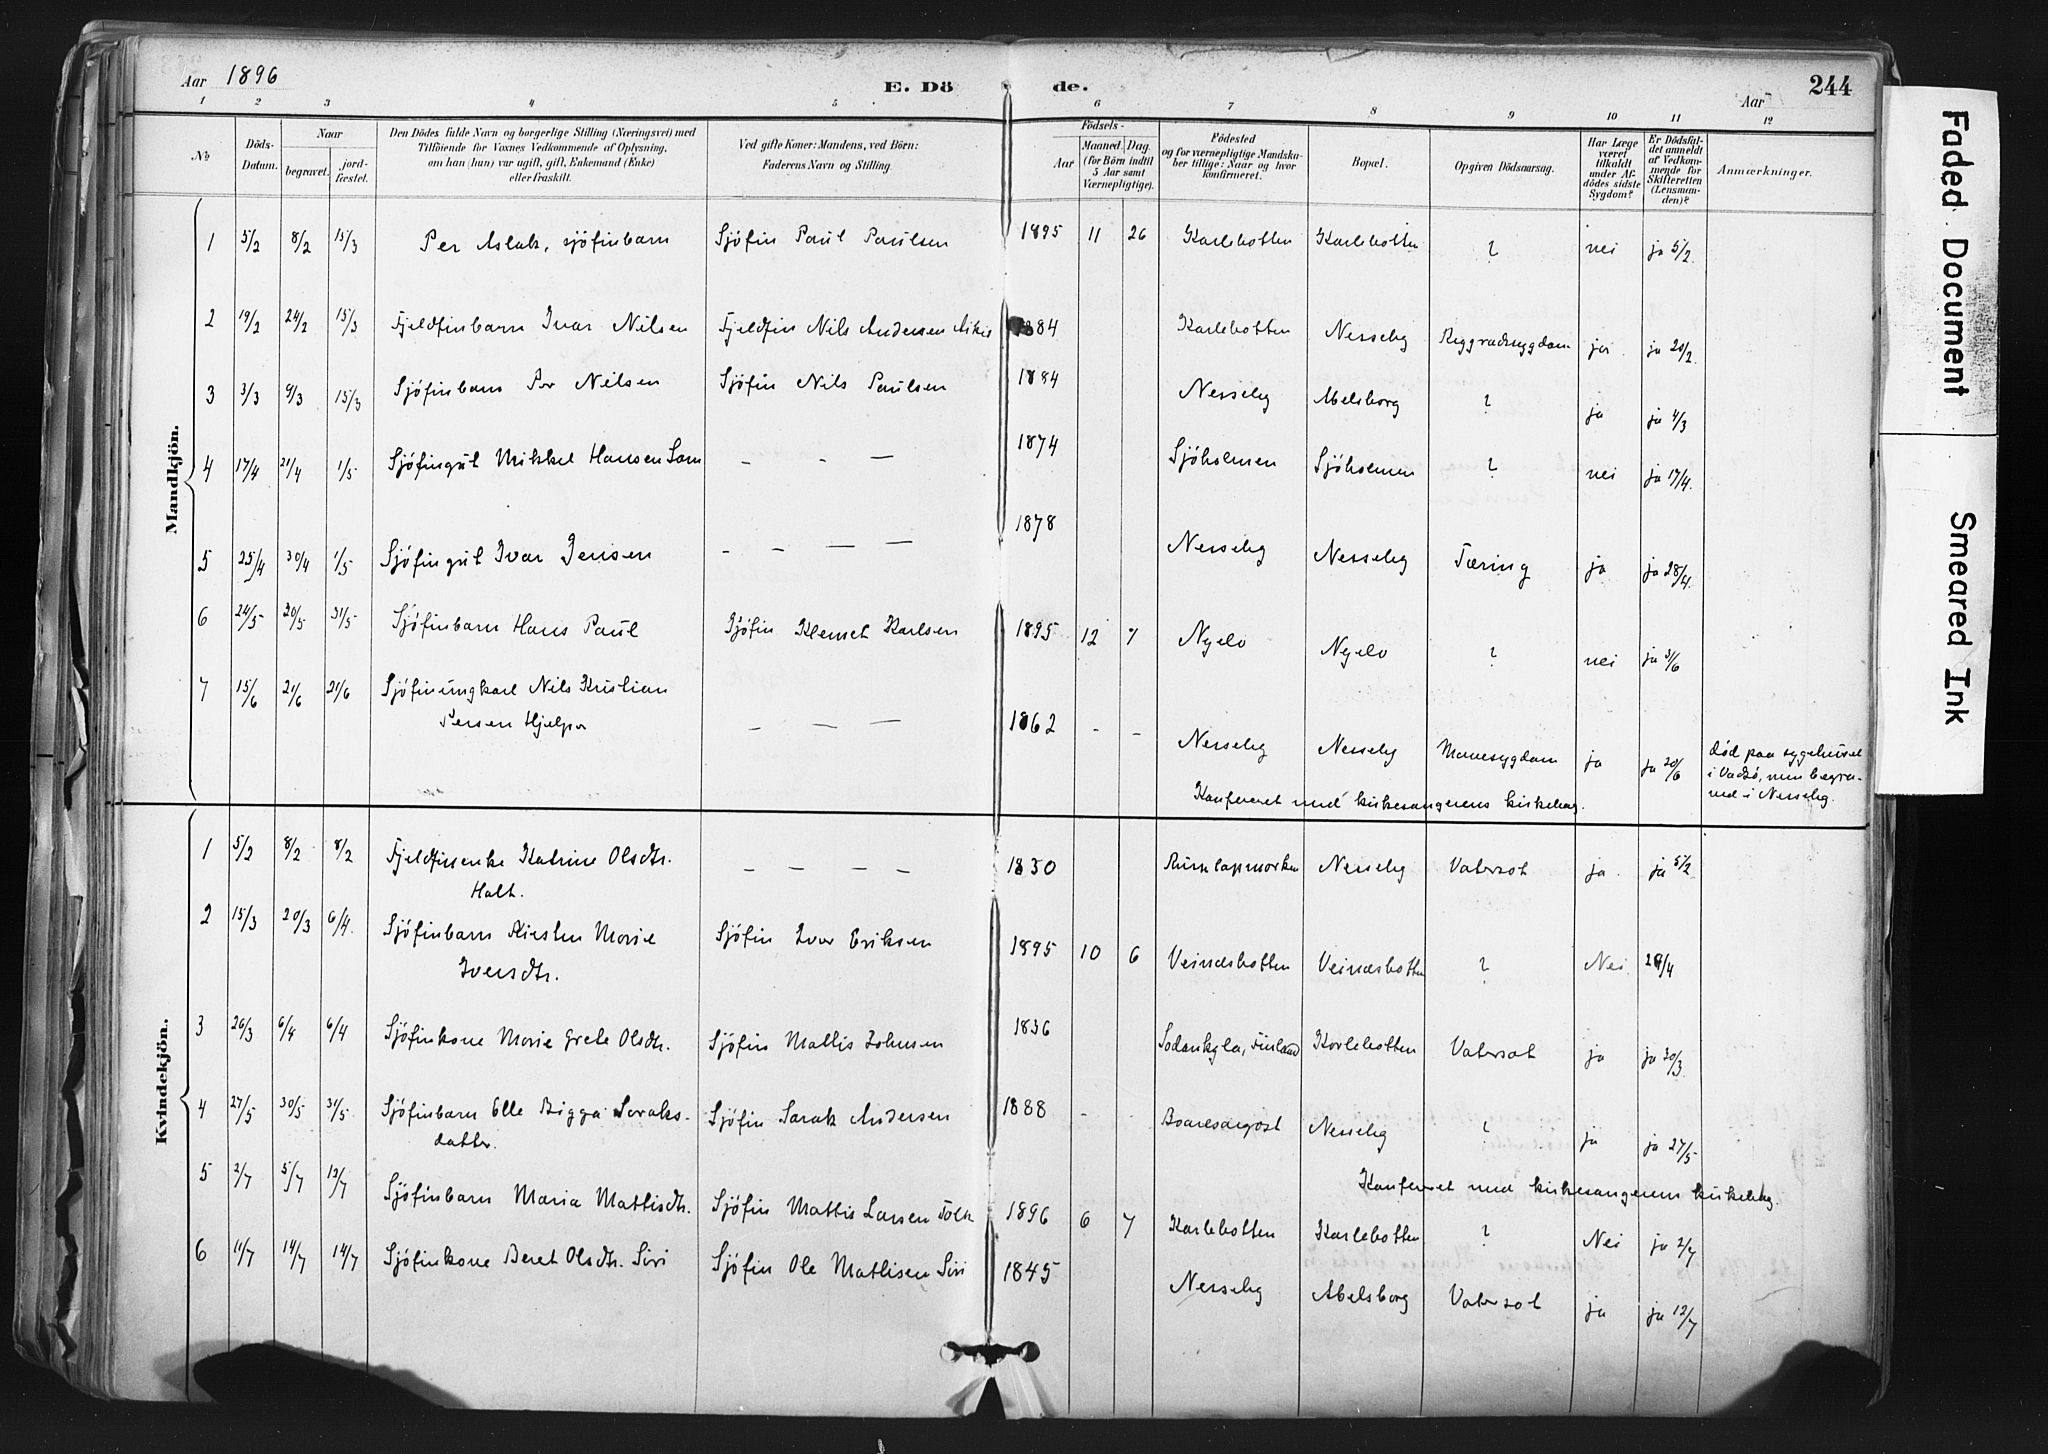 Aar 1896
E. Dö de.
Aar
244
1 2 3 4 5 6 7 8 9 10 11 12
No
Döds-Datum.
Naar
begravet.
jord-fæstet.
Den Dödes fulde Navn og borgerlige Stilling (Næringsvei) med
Tilföiende for Voxnes Vedkommende af Oplysning,
om han (hun) var ugift, gift, Enkemand (Enke)
eller fraskilt.
Ved gifte Koner: Mandens, ved Börn:
Faderens Navn og Stilling.
Födsels-
Aar
Maaned. Dag.
(for Börn indtil
5 Aar samt
Værnepligtige).
Födested
og for værnepligtige Mandska-
ber tillige: Naar og hvor
konfirmeret.
Bopæl.
Opgiven Dödsaarsag.
Har Læge
været
tilkaldt
under Af-
dödes sidste
Sygdom?
Er Dödsfal-
det anmeldt
af Vedkom-
mende for
Skifteretten
(Lensman-
den)?
Anmærkninger.
Mandkjön.
1 5/2 8/2 15/3 Per Aslak, sjöfinbarn Sjöfin Paul Paulsen 1895 11 26 Karlebotten Karlebotten ? nei ja 5/2.
2 19/2 24/2 15/3 Fjeldfinbarn Ivar Nilsen Fjeldfin Nils Andersen Aikio 1884 Karlebotten Nesseby Rygradssygdom ja ja 20/2.
3 3/3 9/3 15/3 Sjöfinbarn Per Nilsen Sjöfin Nils Paulsen 1884 Nesseby Abelsborg ? ja ja 4/3
4 17/4 21/4 1/5 Sjöfingut Mikkel Hansen Sam - - - 1874 Sjöholmen Sjöholmen ? nei ja 17/4.
5 25/4 30/4 1/5 Sjöfingut Ivar Jensen - - - - 1878 Nesseby Nesseby Tæring ja ja 28/4.
6 24/5 30/5 31/5 Sjöfinbarn Hans Paul Sjöfin Klemet Karlsen 1895 12 7 Nyelv Nyelv ? nei ja 3/6
7 15/6 21/6 21/6 Sjöfinungkarl Nils Kristian
Persen Hjelper - - - 1862 - - Nesseby Nesseby Mavesygdom ja ja 20/6
död paa sygehuset
i Vadsö, men begra-
ved i Nesseby.
Konfereret med kirkesangerens kirkebog.
Kvindekjön.
1 5/2 8/2 8/2 Fjeldfinenke Katrine Olsdtr.
Halt. - - - - 1830 Russ lapmarken Nesseby Vatersot ja ja 5/2
2 15/3 20/3 6/4. Sjöfinbarn Kirsten Marie
Iversdtr. Sjöfin Ivar Eriksen 1895 10 6 Veinesbotten Veinesbotten ? Nei 4
3 26/3 6/4 6/4 Sjöfinkone Marie Grete Olsdtr. Sjöfin Mattis Johnsen 1836 Sodankyla, Finland Karlebotten Vatersot ja ja 30/3.
4 27/5 30/5 31/5 Sjöfinbarn Elle Bigga Saraks-
datter. Sjöfin Sarak Andersen 1888 - - Nesseby ? ja ja 27/5
5 2/7 5/7 12/7 Sjöfinbarn Maria Mattisdtr. Sjöfin Mattis Larsen Tolk 1896 6 7 Karlebotten Karlebotten ? Nei ja 2/7
Konfereret med kirkesangerens kirkebog.
6 11/7 14/7 14/7 Sjöfinkone Beret Olsdtr. Siri Sjöfin Ole Mathisen Siri 1845 Nesseby Abelsborg Vatersot ja ja 12/7
Faded Document
Smeared Ink